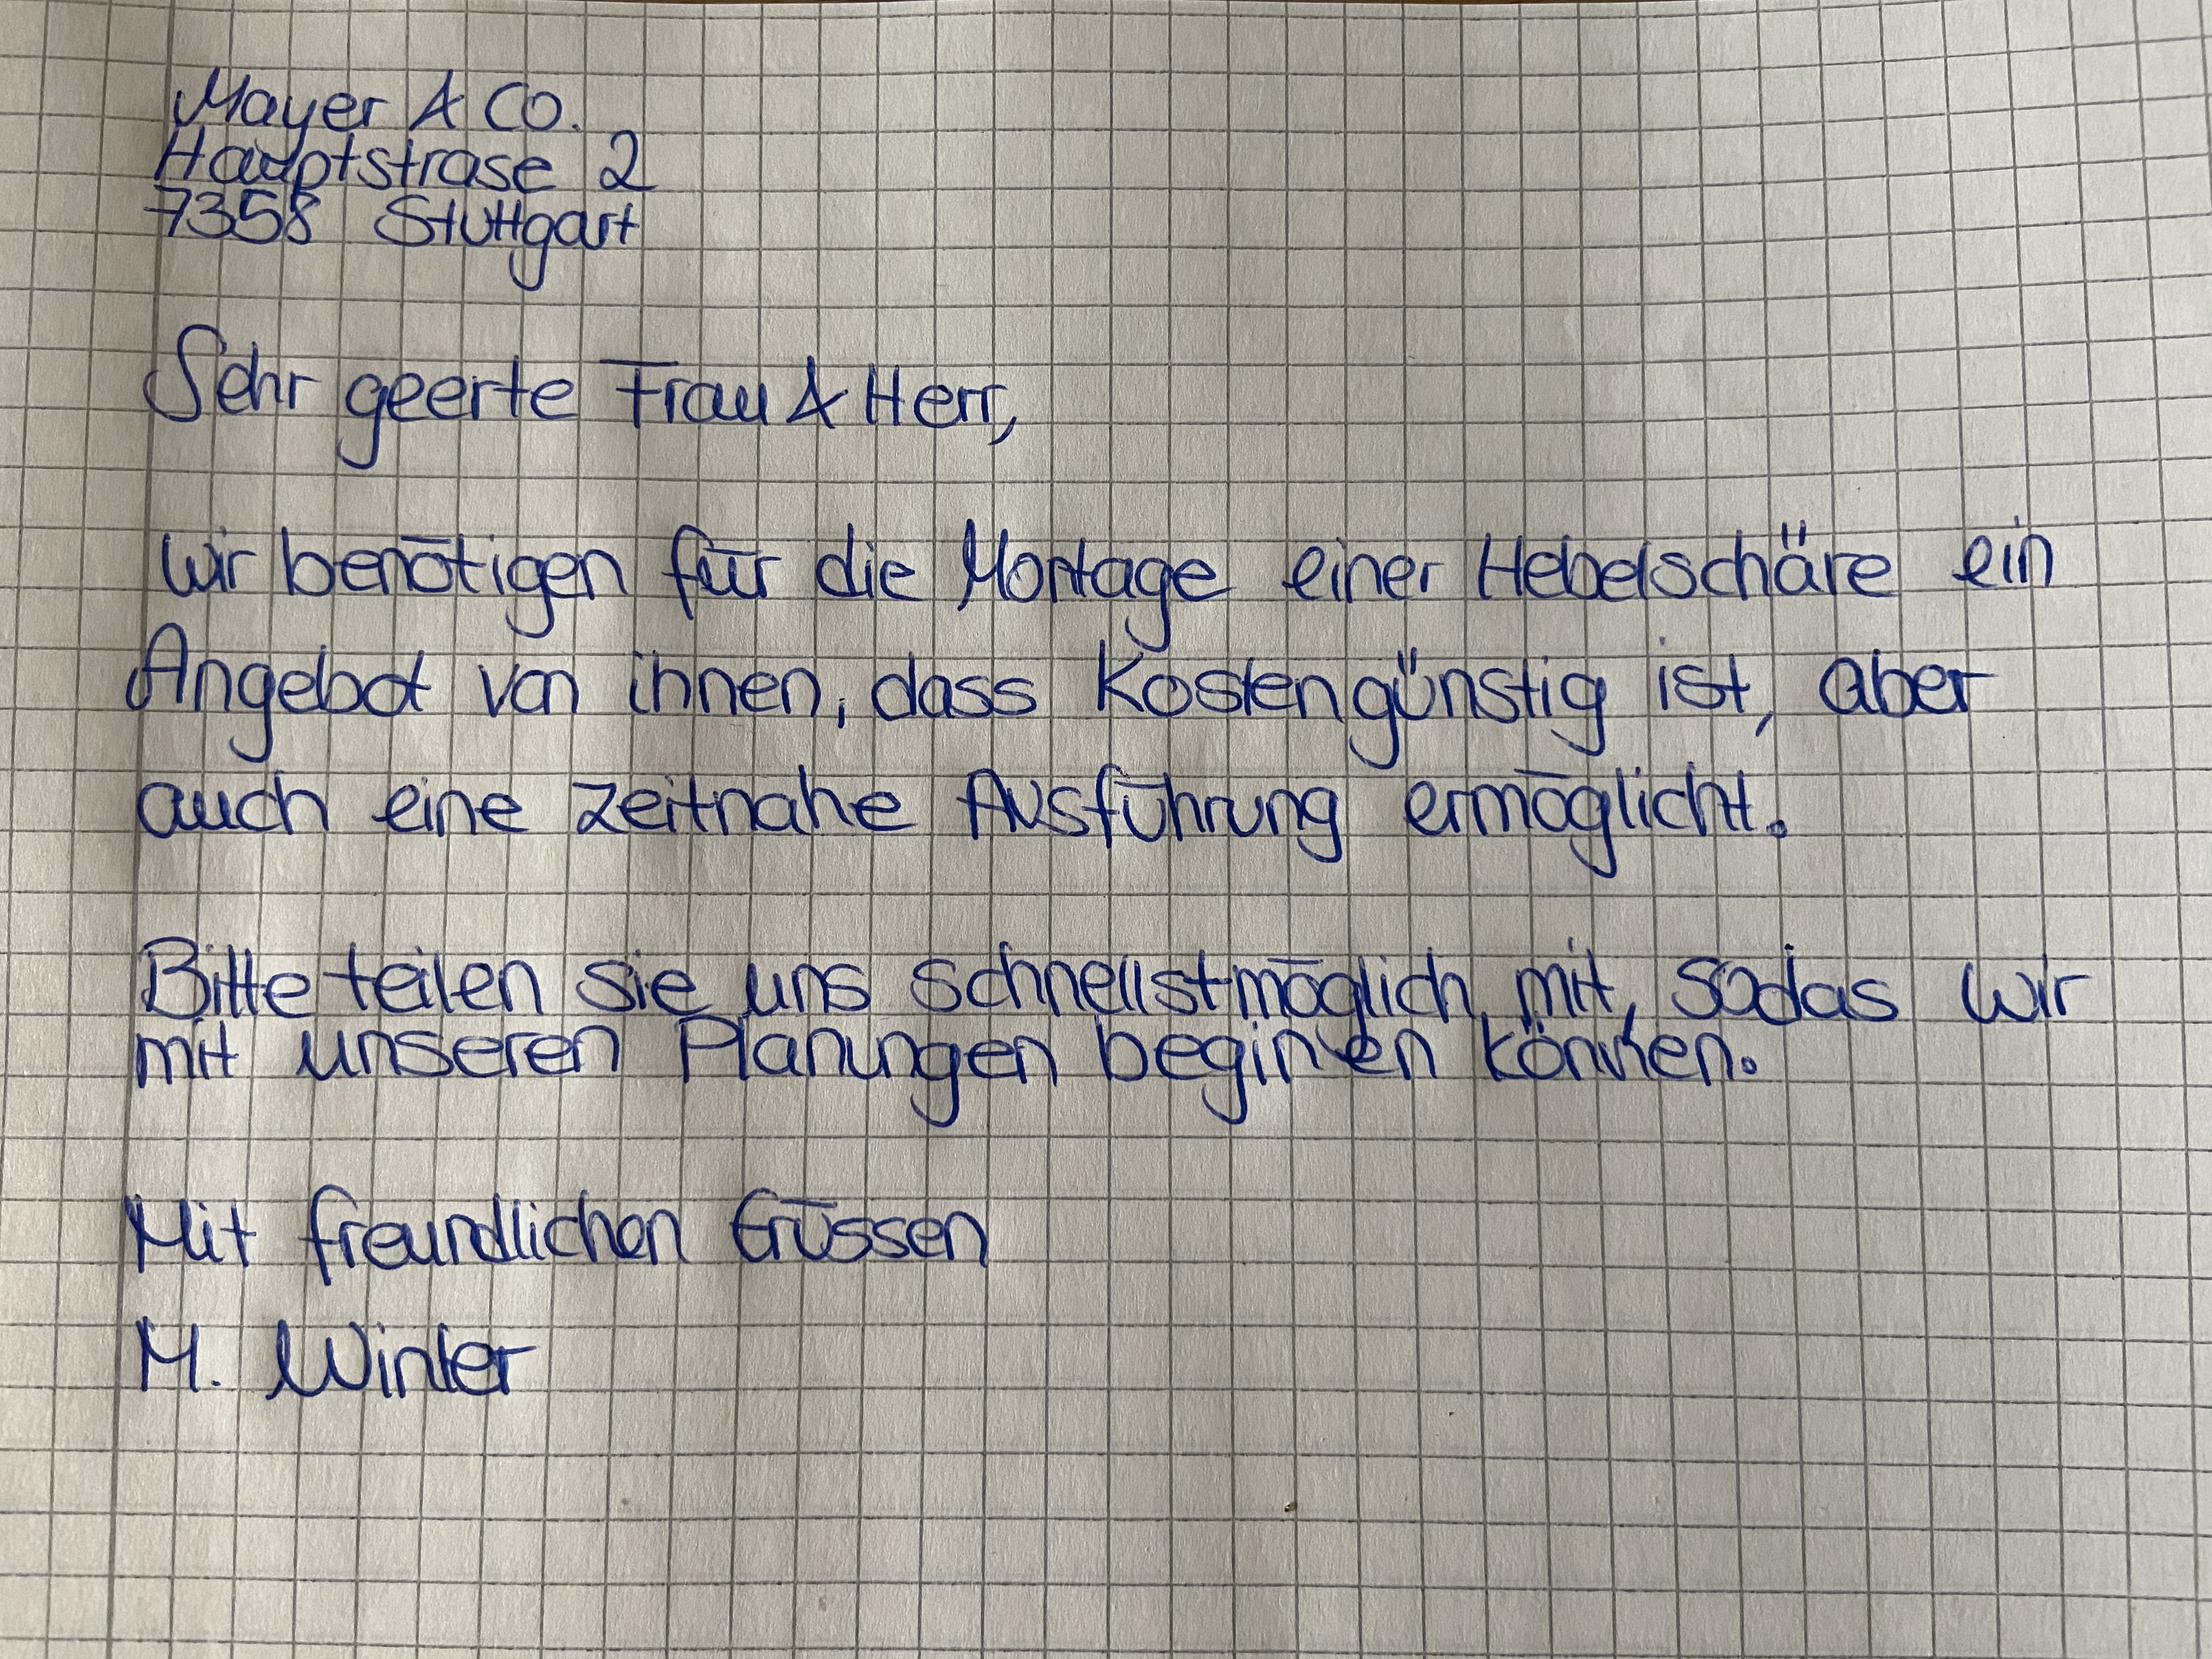 Mayer & Co.
Hauptstrase 2
7358 Stuttgart
Sehr geerte Frau & Herr,
wir benötigen für die Montage einer Hebelschäre ein
Angebot von ihnen, dass Kostengünstig ist, aber
auch eine zeitnahe Ausführung ermöglicht.
Bitte teilen sie uns schnellstmöglich mit, sodas wir
mit unseren Planungen beginnen können.
Mit freundlichen Grüssen
M. Winter